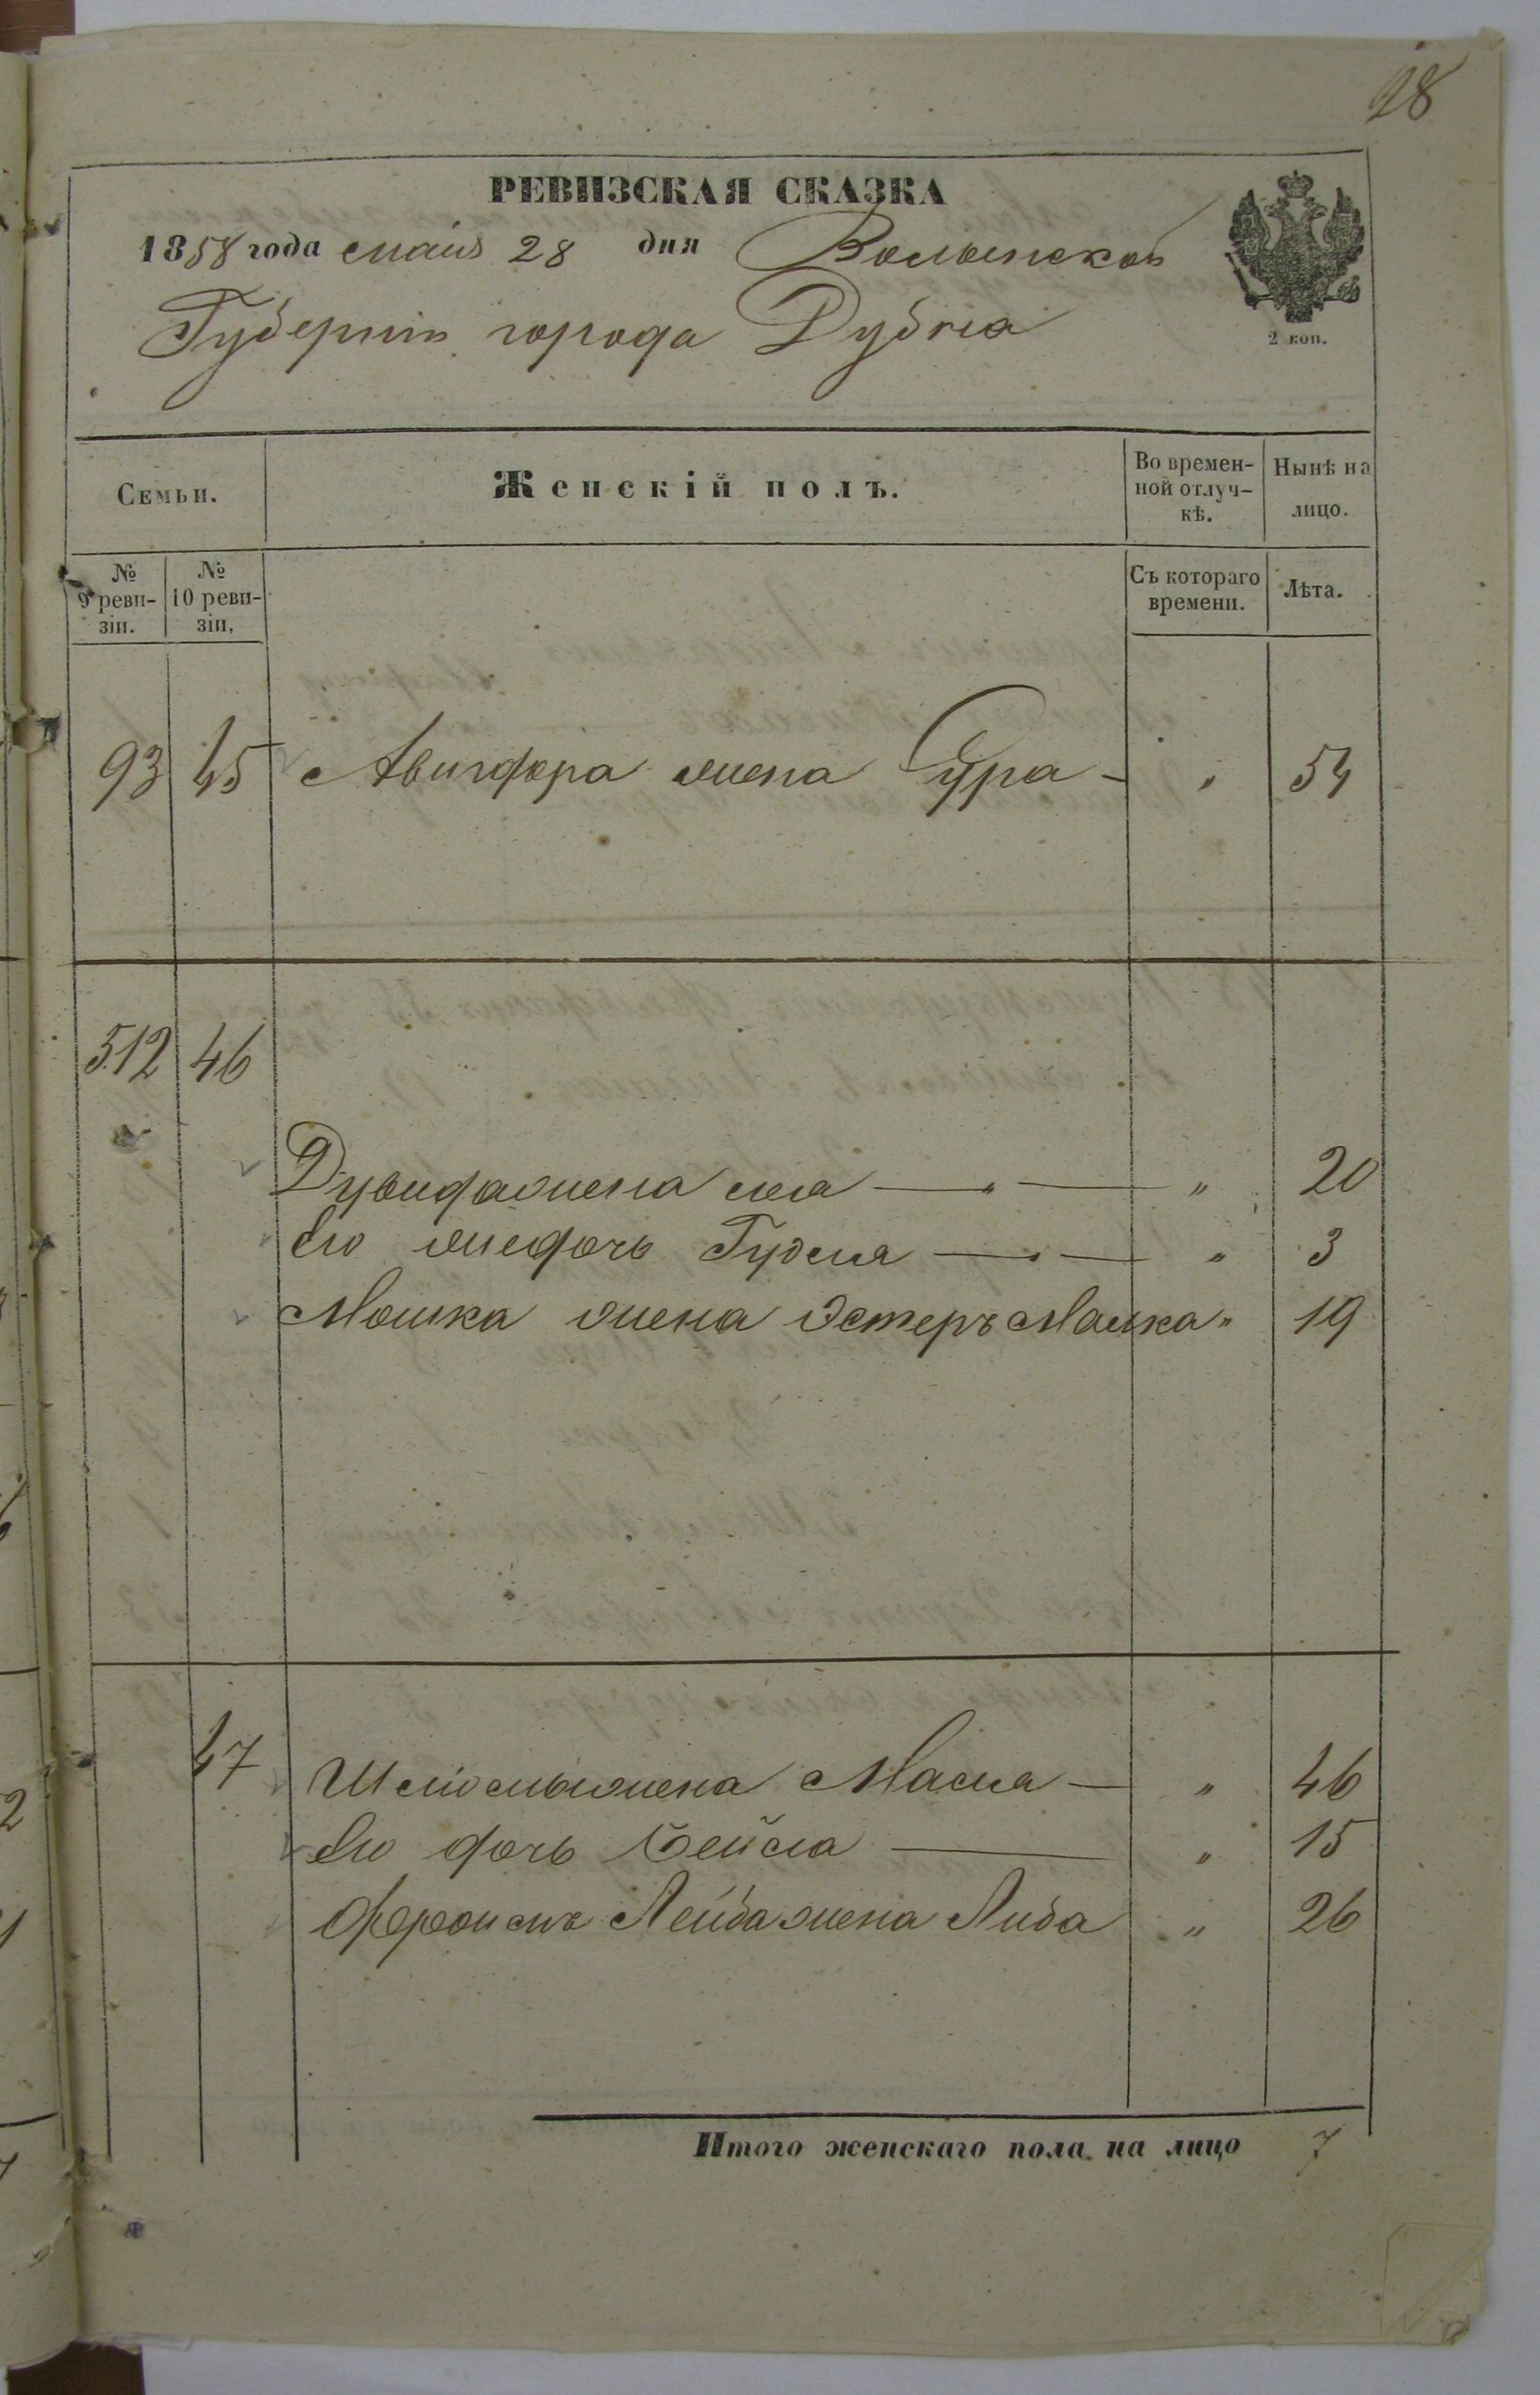 98
РЕВИЗСКАЯ СКАЗКА
1858 года маія 28 дня Волынской
Губерніи города Дубна
2 коп.
Семьи.
Женскій полъ.
Во времен-
ной отлуч-
кѣ.
Нынѣ на
лицо.
№
9 реви-
зіи.
№
10 реви-
зіи.
Съ котораго
времени.
Лѣта.
93 45 Авигдора жена Сура - " 54
512 46
Дувида жена — " — " 20
Его жедочь Гудля — " — " 3
Мошка жена Эстеръ Малка " 19
47 Шлиомы жена Масля — " 46
Его дочь Бейла — " 15
Фроимъ Лейба жена Либа " 26
Итого женскаго пола на лицо 7